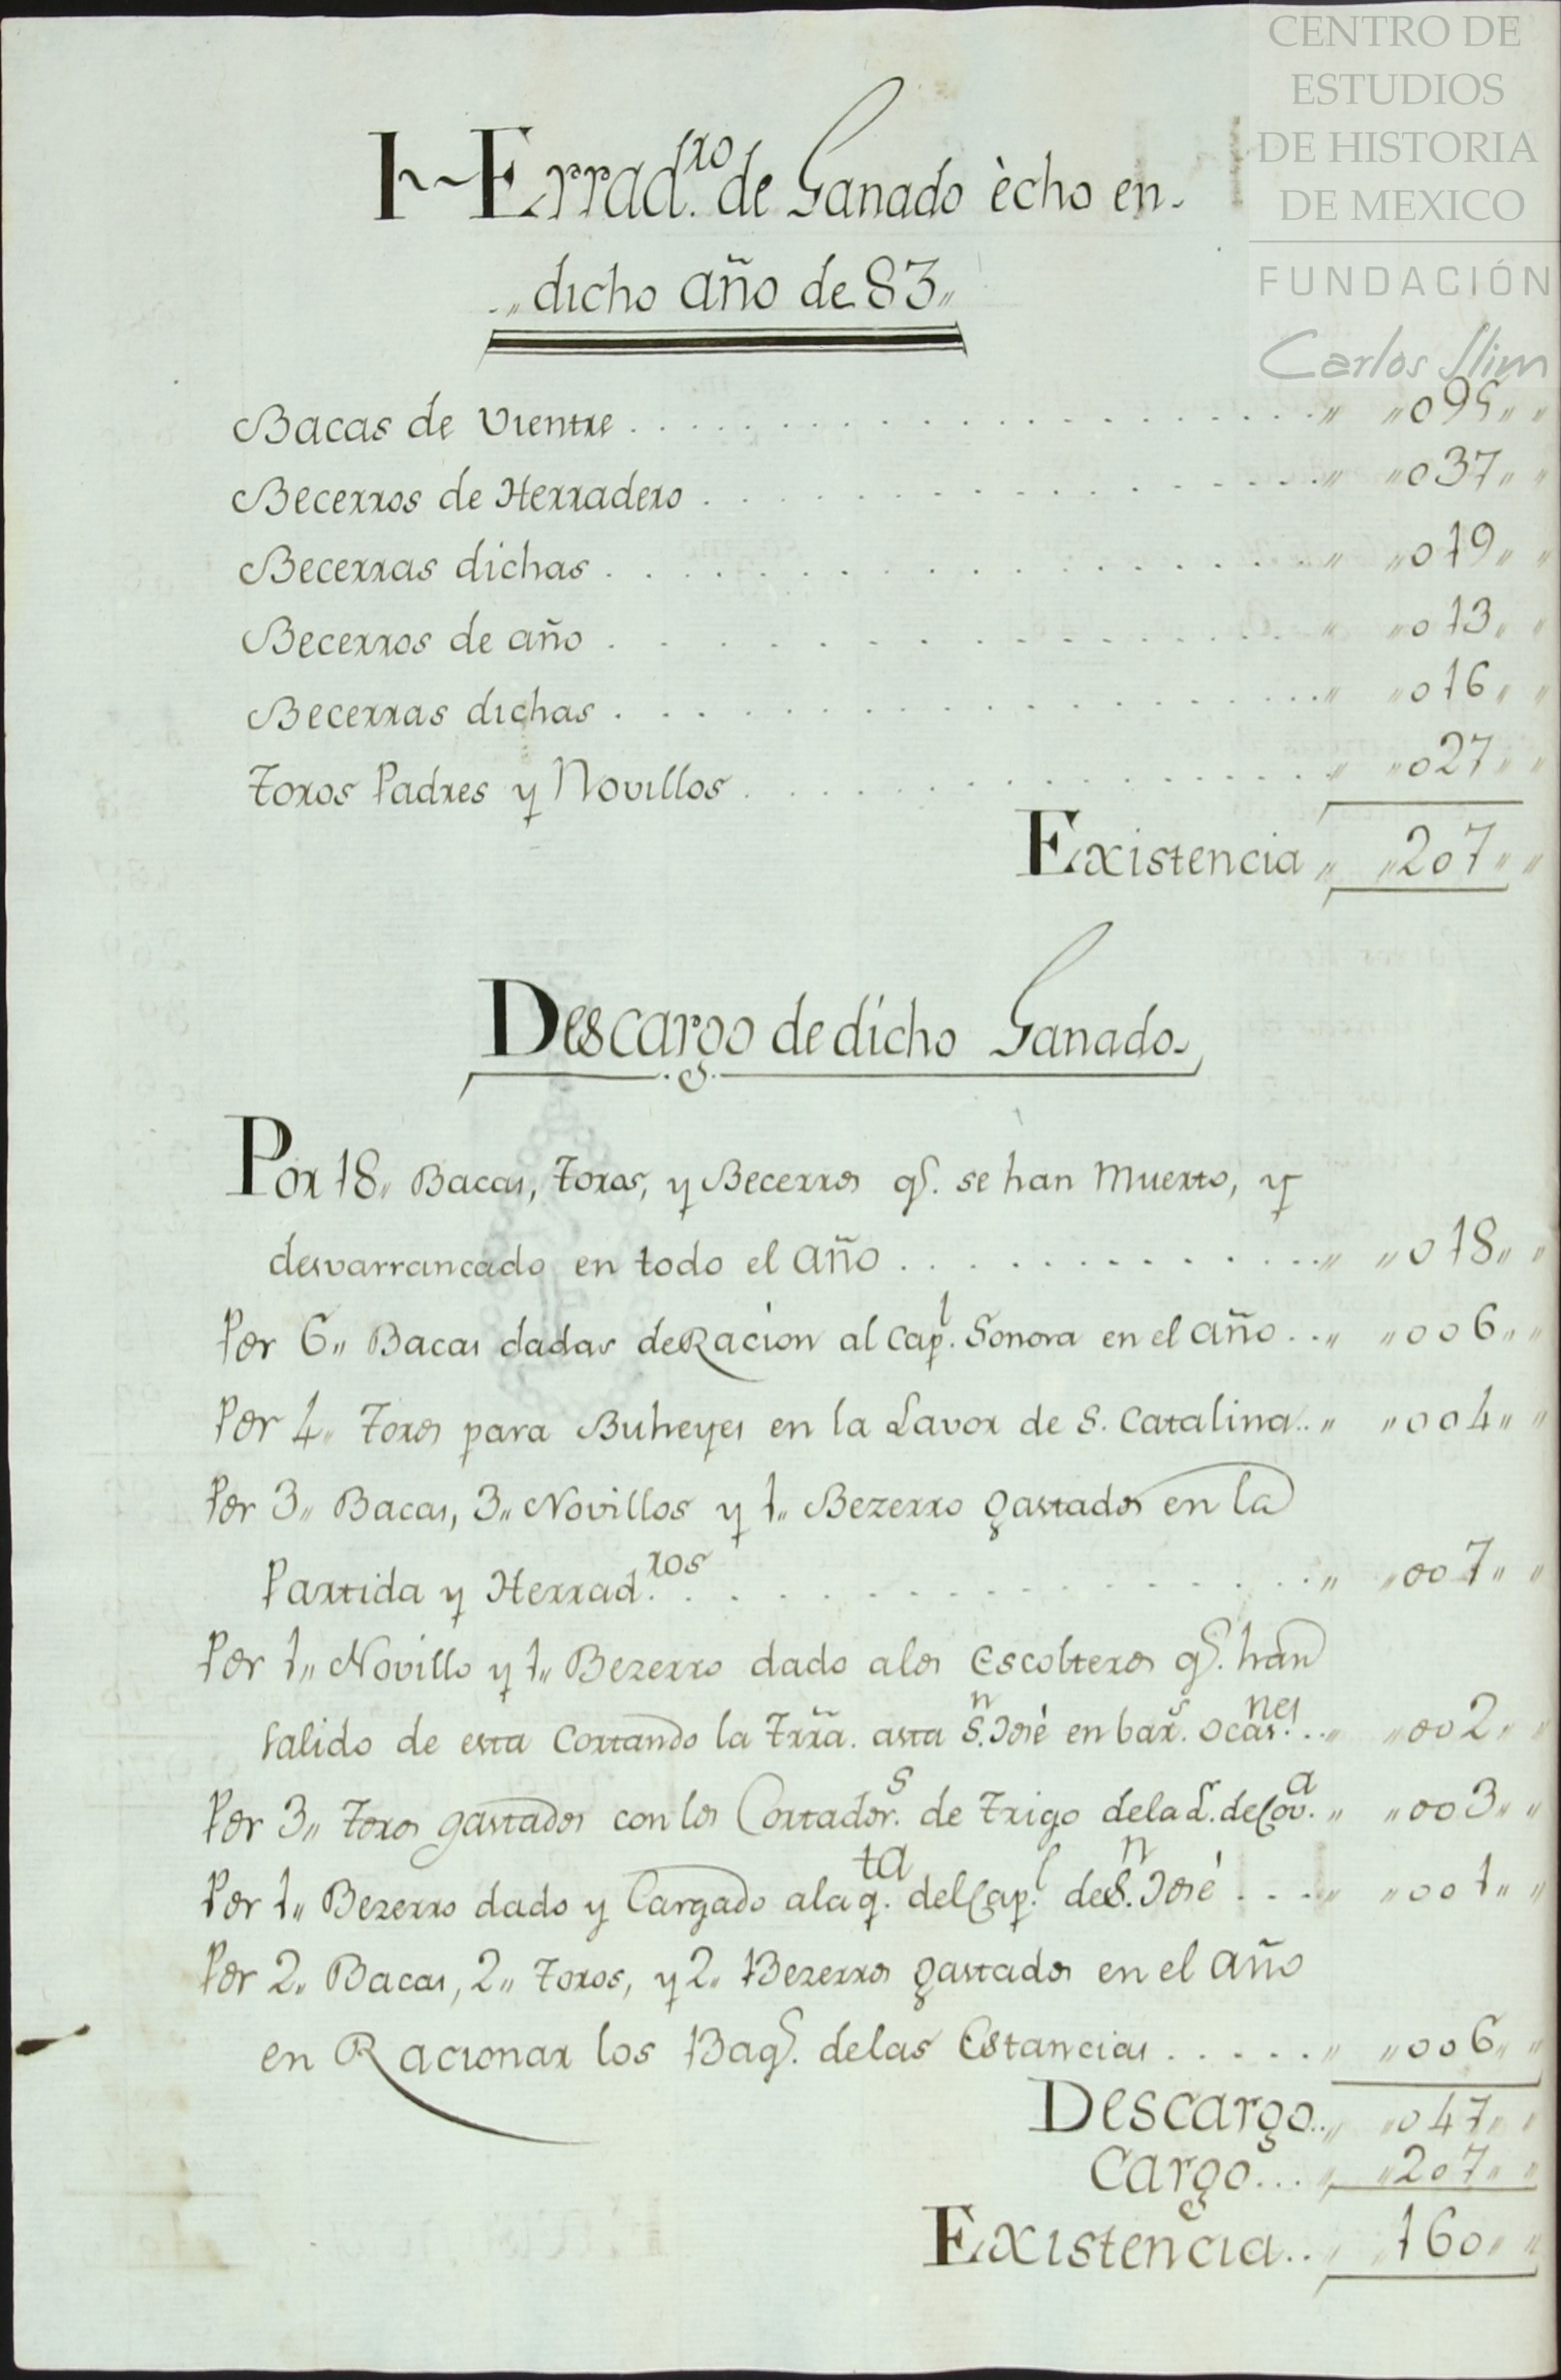 CENTRO DE
ESTUDIOS
DE HISTORIA
DE MEXICO
FUNDACIÓN
Carlos Slim
HErrad.ro de Ganado ècho en
dicho año de 83
Bacas de Vientre . . . 095
Becerros de Herradero . . . 037
Becerras dichas . . . 019
Becerros de año . . . 013
Becerras dichas . . . 016
Toros Padres y Novillos . . . 027
Existencia 207
Descargo de dicho Ganado
Por 18 Bacas, Toros, y Becerros q.e se han Muerto, y
desvarrancado en todo el año . . . 018
Por 6 Bacas dadas de Racion al Cap.l Sonora en el año . . 006
Por 4 Toros para Buheyes en la Lavor de S. Catalina . . 004
Por 3 Bacas, 3 Novillos y 1 Bezerro gastados en la
Partida y Herrad.ros . . . 007
Por 1 Novillo y 1 Bezerro dado a los Escolteros q.e han
salido de esta Cortando la Trra. asta S.n José en bar.s ocas.nes . . 002
Por 3 Toros gastados con los Cortador.s de Trigo de la L.r de Cov.a 003
Por 1 Bezerro dado y Cargado a la q.ta del Cap.l de S.n José . . . 001
Por 2 Bacas, 2 Toros, y 2 Bezerros gastados en el año
en Racionar los Baq.s de las Estancias . . . 006
Descargo . . 047
Cargo . . . 207
Existencia . . 160